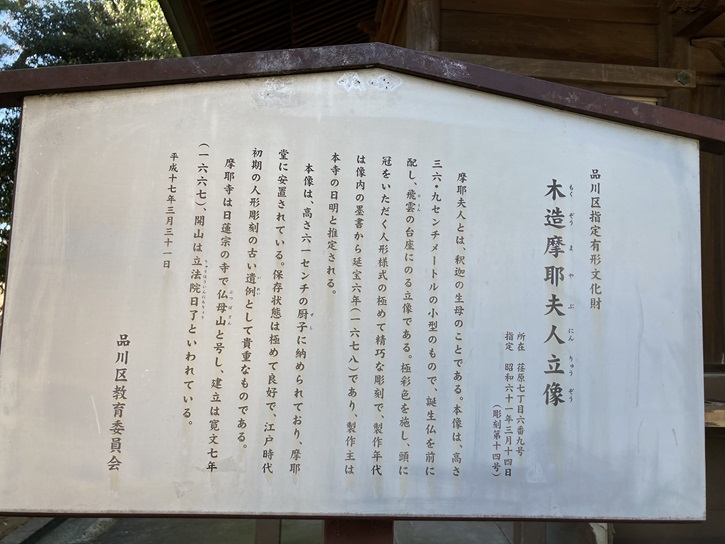 品川区指定有形文化財
木造摩耶夫人立像
もくぞうまやぶにんりゅうぞう
所在 荏原七丁目六番九号
指定 昭和六十一年三月十四日
(彫刻第十四号)
摩耶夫人とは、釈迦の生母のことである。本像は、高さ
三六・九センチメートルの小型のもので、誕生仏を前に
配し、飛雲の台座にのる立像である。極彩色を施し、頭に
冠をいただく人形様式の極めて精巧な彫刻で、製作年代
は像内の墨書から延宝六年(一六七八)であり、製作主は
本寺の日明と推定される。
本像は、高さ六一センチの厨子に納められており、摩耶
堂に安置されている。保存状態は極めて良好で、江戸時代
初期の人形彫刻の古い遺例として貴重なものである。
摩耶寺は日蓮宗の寺で仏母山と号し、建立は寛文七年
(一六六七)、開山は立法院日了といわれている。
平成十七年三月三十一日
品川区教育委員会